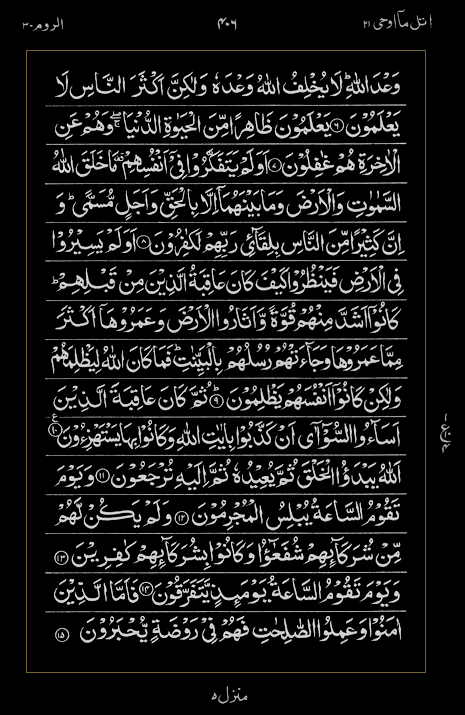 اتل مآ اوحی ۲۱ ۴۰۶ الروم ۳۰
وَعْدَ اللّٰهِ ؕ لَا یُخْلِفُ اللّٰهُ وَعْدَهٗ وَلٰكِنَّ اَكْثَرَ النَّاسِ لَا
یَعْلَمُوْنَ ۶ یَعْلَمُوْنَ ظَاهِرًا مِّنَ الْحَیٰوةِ الدُّنْیَا ۖۚ وَهُمْ عَنِ
الْاٰخِرَةِ هُمْ غٰفِلُوْنَ ۷ اَوَلَمْ یَتَفَكَّرُوْا فِیْۤ اَنْفُسِهِمْ ۫ مَا خَلَقَ اللّٰهُ
السَّمٰوٰتِ وَالْاَرْضَ وَمَا بَیْنَهُمَاۤ اِلَّا بِالْحَقِّ وَاَجَلٍ مُّسَمًّی ؕ وَ
اِنَّ كَثِیْرًا مِّنَ النَّاسِ بِلِقَآئِ رَبِّهِمْ لَكٰفِرُوْنَ ۸ اَوَلَمْ یَسِیْرُوْا
فِی الْاَرْضِ فَیَنْظُرُوْا كَیْفَ كَانَ عَاقِبَةُ الَّذِیْنَ مِنْ قَبْلِهِمْ ؕ
كَانُوْۤا اَشَدَّ مِنْهُمْ قُوَّةً وَّاَثَارُوا الْاَرْضَ وَعَمَرُوْهَاۤ اَكْثَرَ
مِمَّا عَمَرُوْهَا وَجَآءَتْهُمْ رُسُلُهُمْ بِالْبَیِّنٰتِ ؕ فَمَا كَانَ اللّٰهُ لِیَظْلِمَهُمْ
وَلٰكِنْ كَانُوْۤا اَنْفُسَهُمْ یَظْلِمُوْنَ ۹ ثُمَّ كَانَ عَاقِبَةَ الَّذِیْنَ
اَسَآءُوا السُّوْٓاٰۤی اَنْ كَذَّبُوْا بِاٰیٰتِ اللّٰهِ وَكَانُوْا بِهَا یَسْتَهْزِءُوْنَ ۱۰ ع
اَللّٰهُ یَبْدَؤُا الْخَلْقَ ثُمَّ یُعِیْدُهٗ ثُمَّ اِلَیْهِ تُرْجَعُوْنَ ۱۱ وَیَوْمَ
تَقُوْمُ السَّاعَةُ یُبْلِسُ الْمُجْرِمُوْنَ ۱۲ وَلَمْ یَكُنْ لَّهُمْ
مِّنْ شُرَكَآئِهِمْ شُفَعٰٓؤُا وَكَانُوْا بِشُرَكَآئِهِمْ كٰفِرِیْنَ ۱۳
وَیَوْمَ تَقُوْمُ السَّاعَةُ یَوْمَئِذٍ یَّتَفَرَّقُوْنَ ۱۴ فَاَمَّا الَّذِیْنَ
اٰمَنُوْا وَعَمِلُوا الصّٰلِحٰتِ فَهُمْ فِیْ رَوْضَةٍ یُّحْبَرُوْنَ ۱۵
منزل ۵